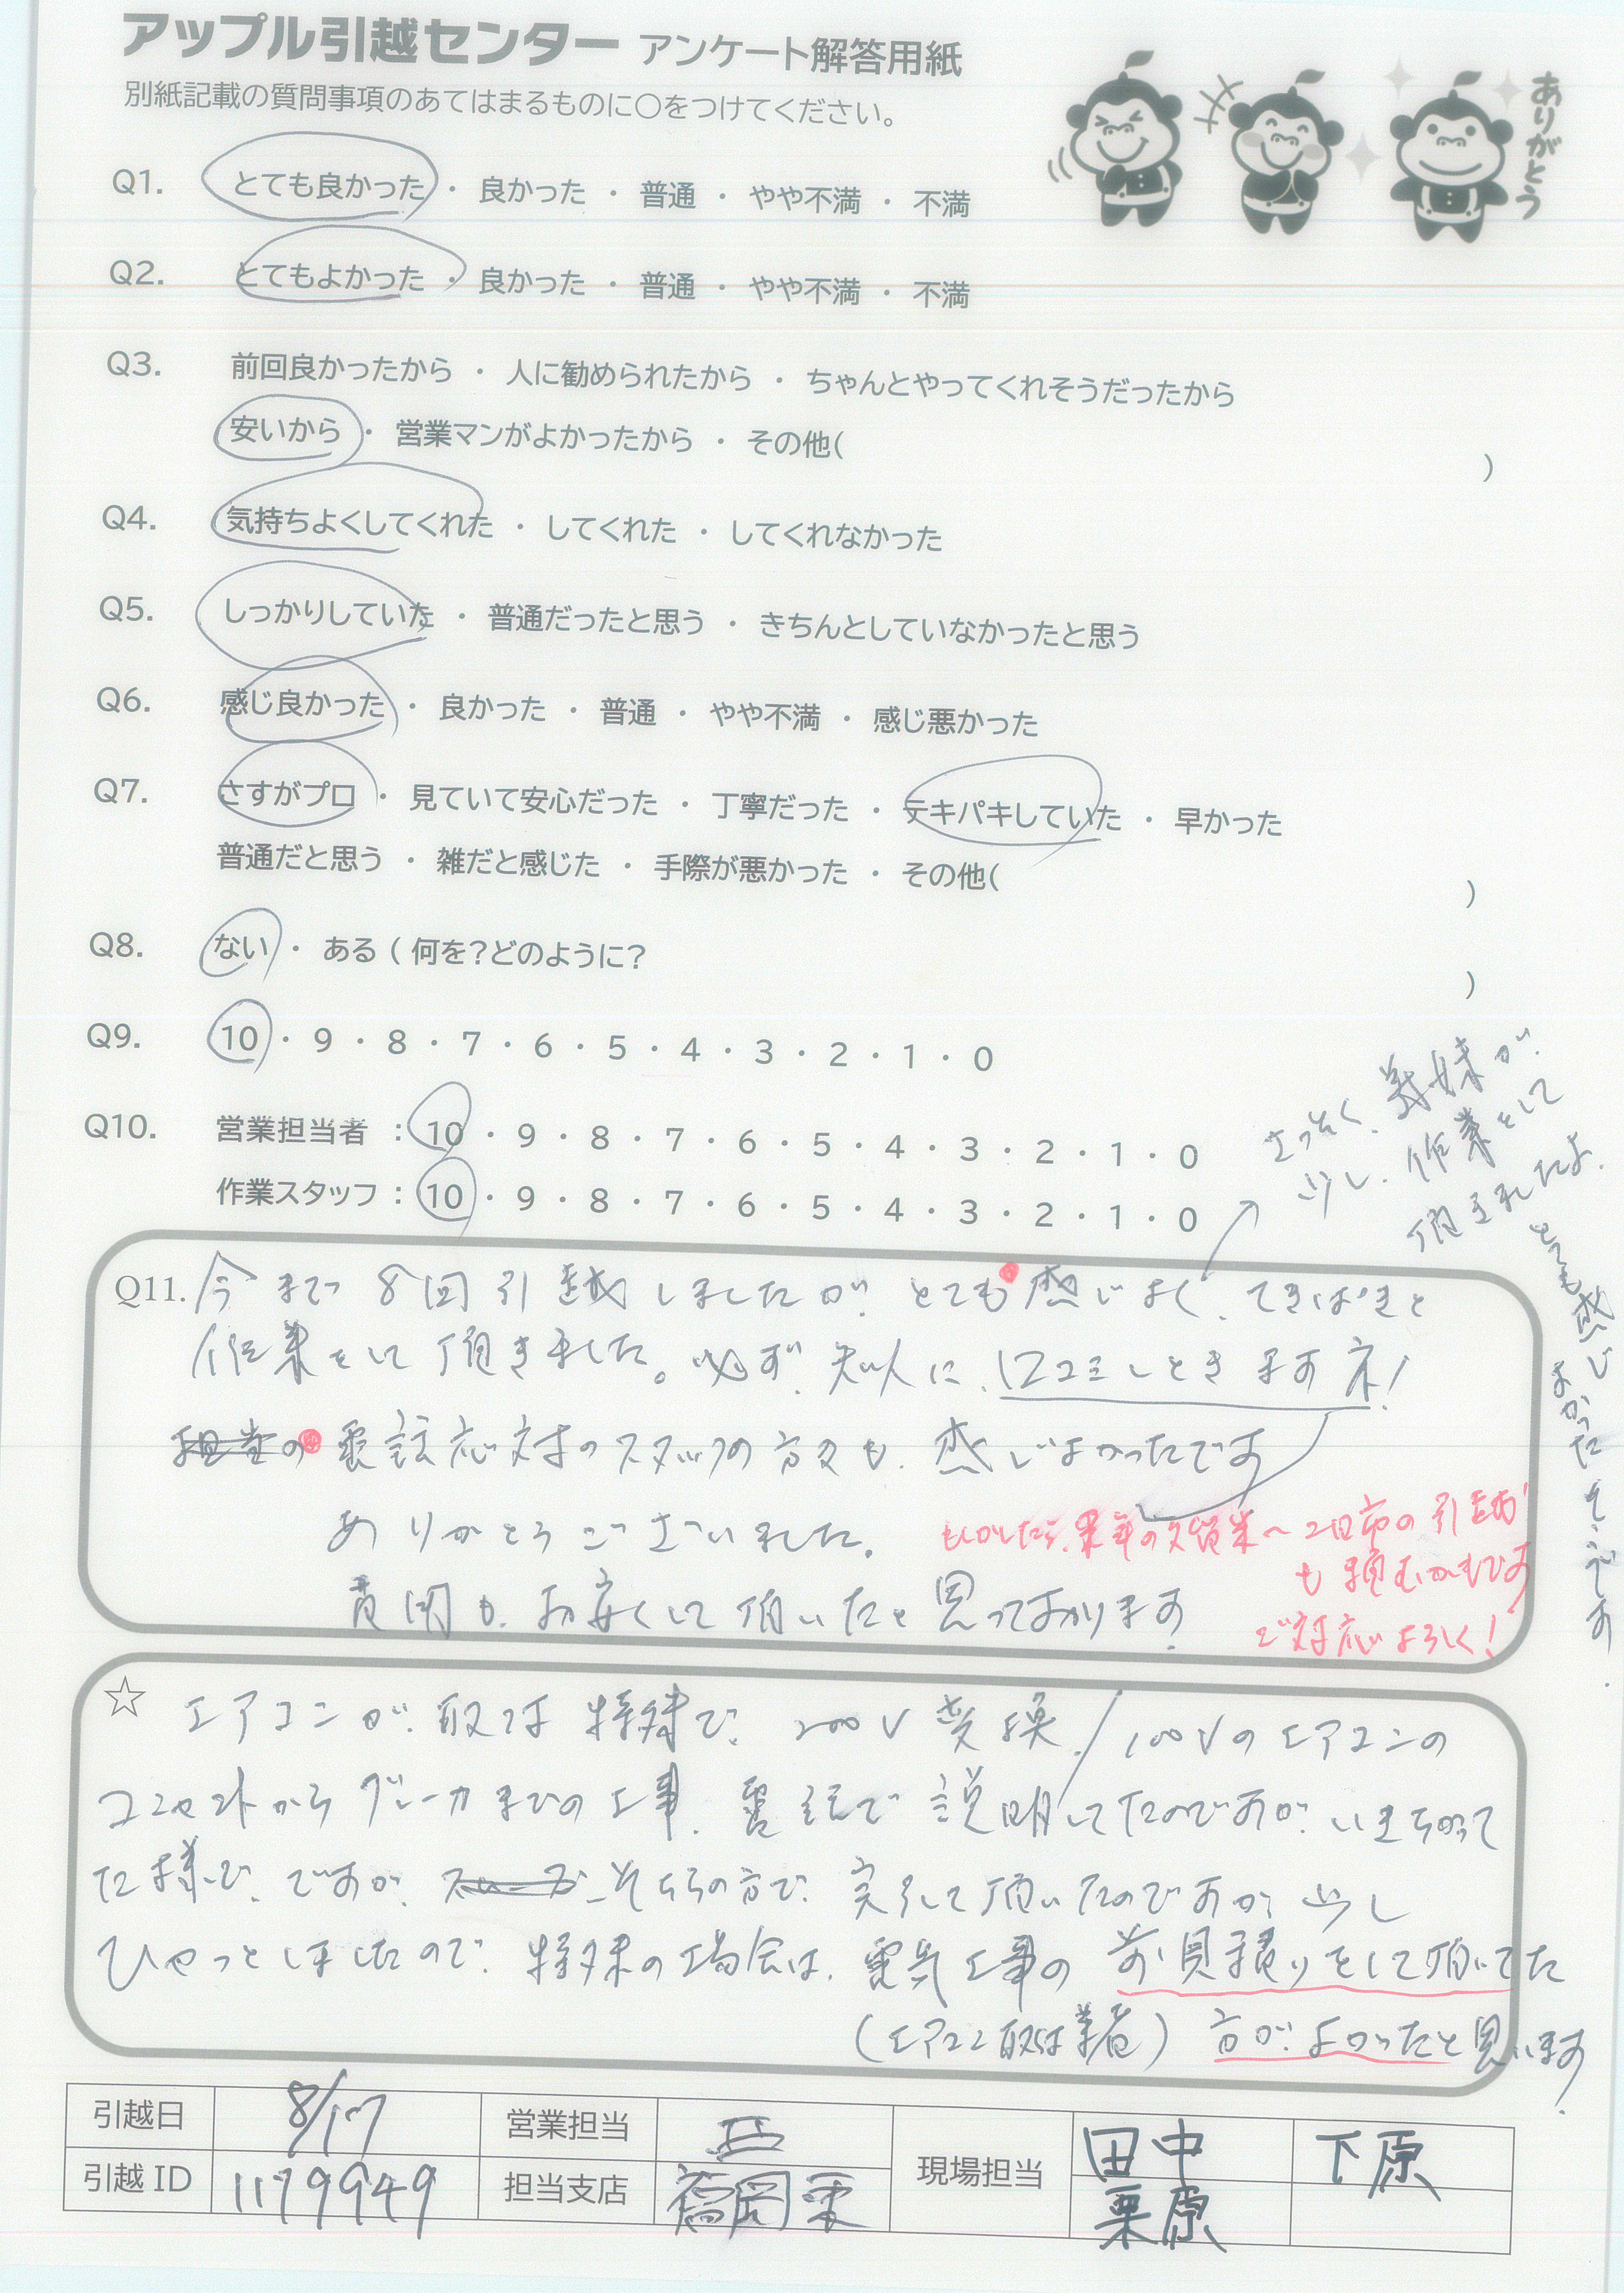 アップル引越センター アンケート解答用紙
別紙記載の質問事項のあてはまるものに○をつけてください。
ありがとう
Q1. とても良かった ・ 良かった ・ 普通 ・ やや不満 ・ 不満
Q2. とてもよかった ・ 良かった ・ 普通 ・ やや不満 ・ 不満
Q3. 前回良かったから ・ 人に勧められたから ・ ちゃんとやってくれそうだったから
安いから ・ 営業マンがよかったから ・ その他( )
Q4. 気持ちよくしてくれた ・ してくれた ・ してくれなかった
Q5. しっかりしていた ・ 普通だったと思う ・ きちんとしていなかったと思う
Q6. 感じ良かった ・ 良かった ・ 普通 ・ やや不満 ・ 感じ悪かった
Q7. さすがプロ ・ 見ていて安心だった ・ 丁寧だった ・ テキパキしていた ・ 早かった
普通だと思う ・ 雑だと感じた ・ 手際が悪かった ・ その他( )
Q8. ない ・ ある ( 何を?どのように? )
Q9. 10 ・ 9 ・ 8 ・ 7 ・ 6 ・ 5 ・ 4 ・ 3 ・ 2 ・ 1 ・ 0
Q10. 営業担当者 : 10 ・ 9 ・ 8 ・ 7 ・ 6 ・ 5 ・ 4 ・ 3 ・ 2 ・ 1 ・ 0
作業スタッフ : 10 ・ 9 ・ 8 ・ 7 ・ 6 ・ 5 ・ 4 ・ 3 ・ 2 ・ 1 ・ 0
さっそく、義妹が、
少し、作業をして
頂きましたよ。
とても感じ
よかったそうです。
Q11. 今まで8回引越しましたが、とても感じよく、てきぱきと
作業をして頂きました。必ず、知人に、口コミしときますネ!
担当の 電話応対のスタッフの方々も、感じよかったです
ありがとうございました。
費用も、お安くして頂いたと思っております。
もしかしたら、来年の久留米〜二日市の引越が
も頼むかもです
ご対応よろしく!
☆ エアコンが、取つけ特殊で、200V変換/100Vのエアコンの
コンセントからブレーカまでの工事、電話で説明してたのですが、いきちがって
た様で、ですが、そちらの方で、完了して頂いたのですが、少し
ひやっとしましたので、特殊の場合は、電気工事の お見積りをして頂いてた
(エアコン取付業者) 方が、よかったと思います。
引越日 8/17 営業担当 現場担当 田中 下原
引越 ID 1179949 担当支店 福岡東 栗原